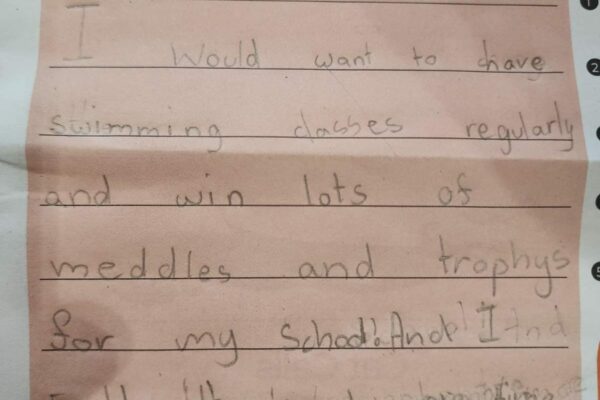 I Would want to have
swimming classes regularly
and win lots of
meddles and trophys
for my School! And I And
1
2
5